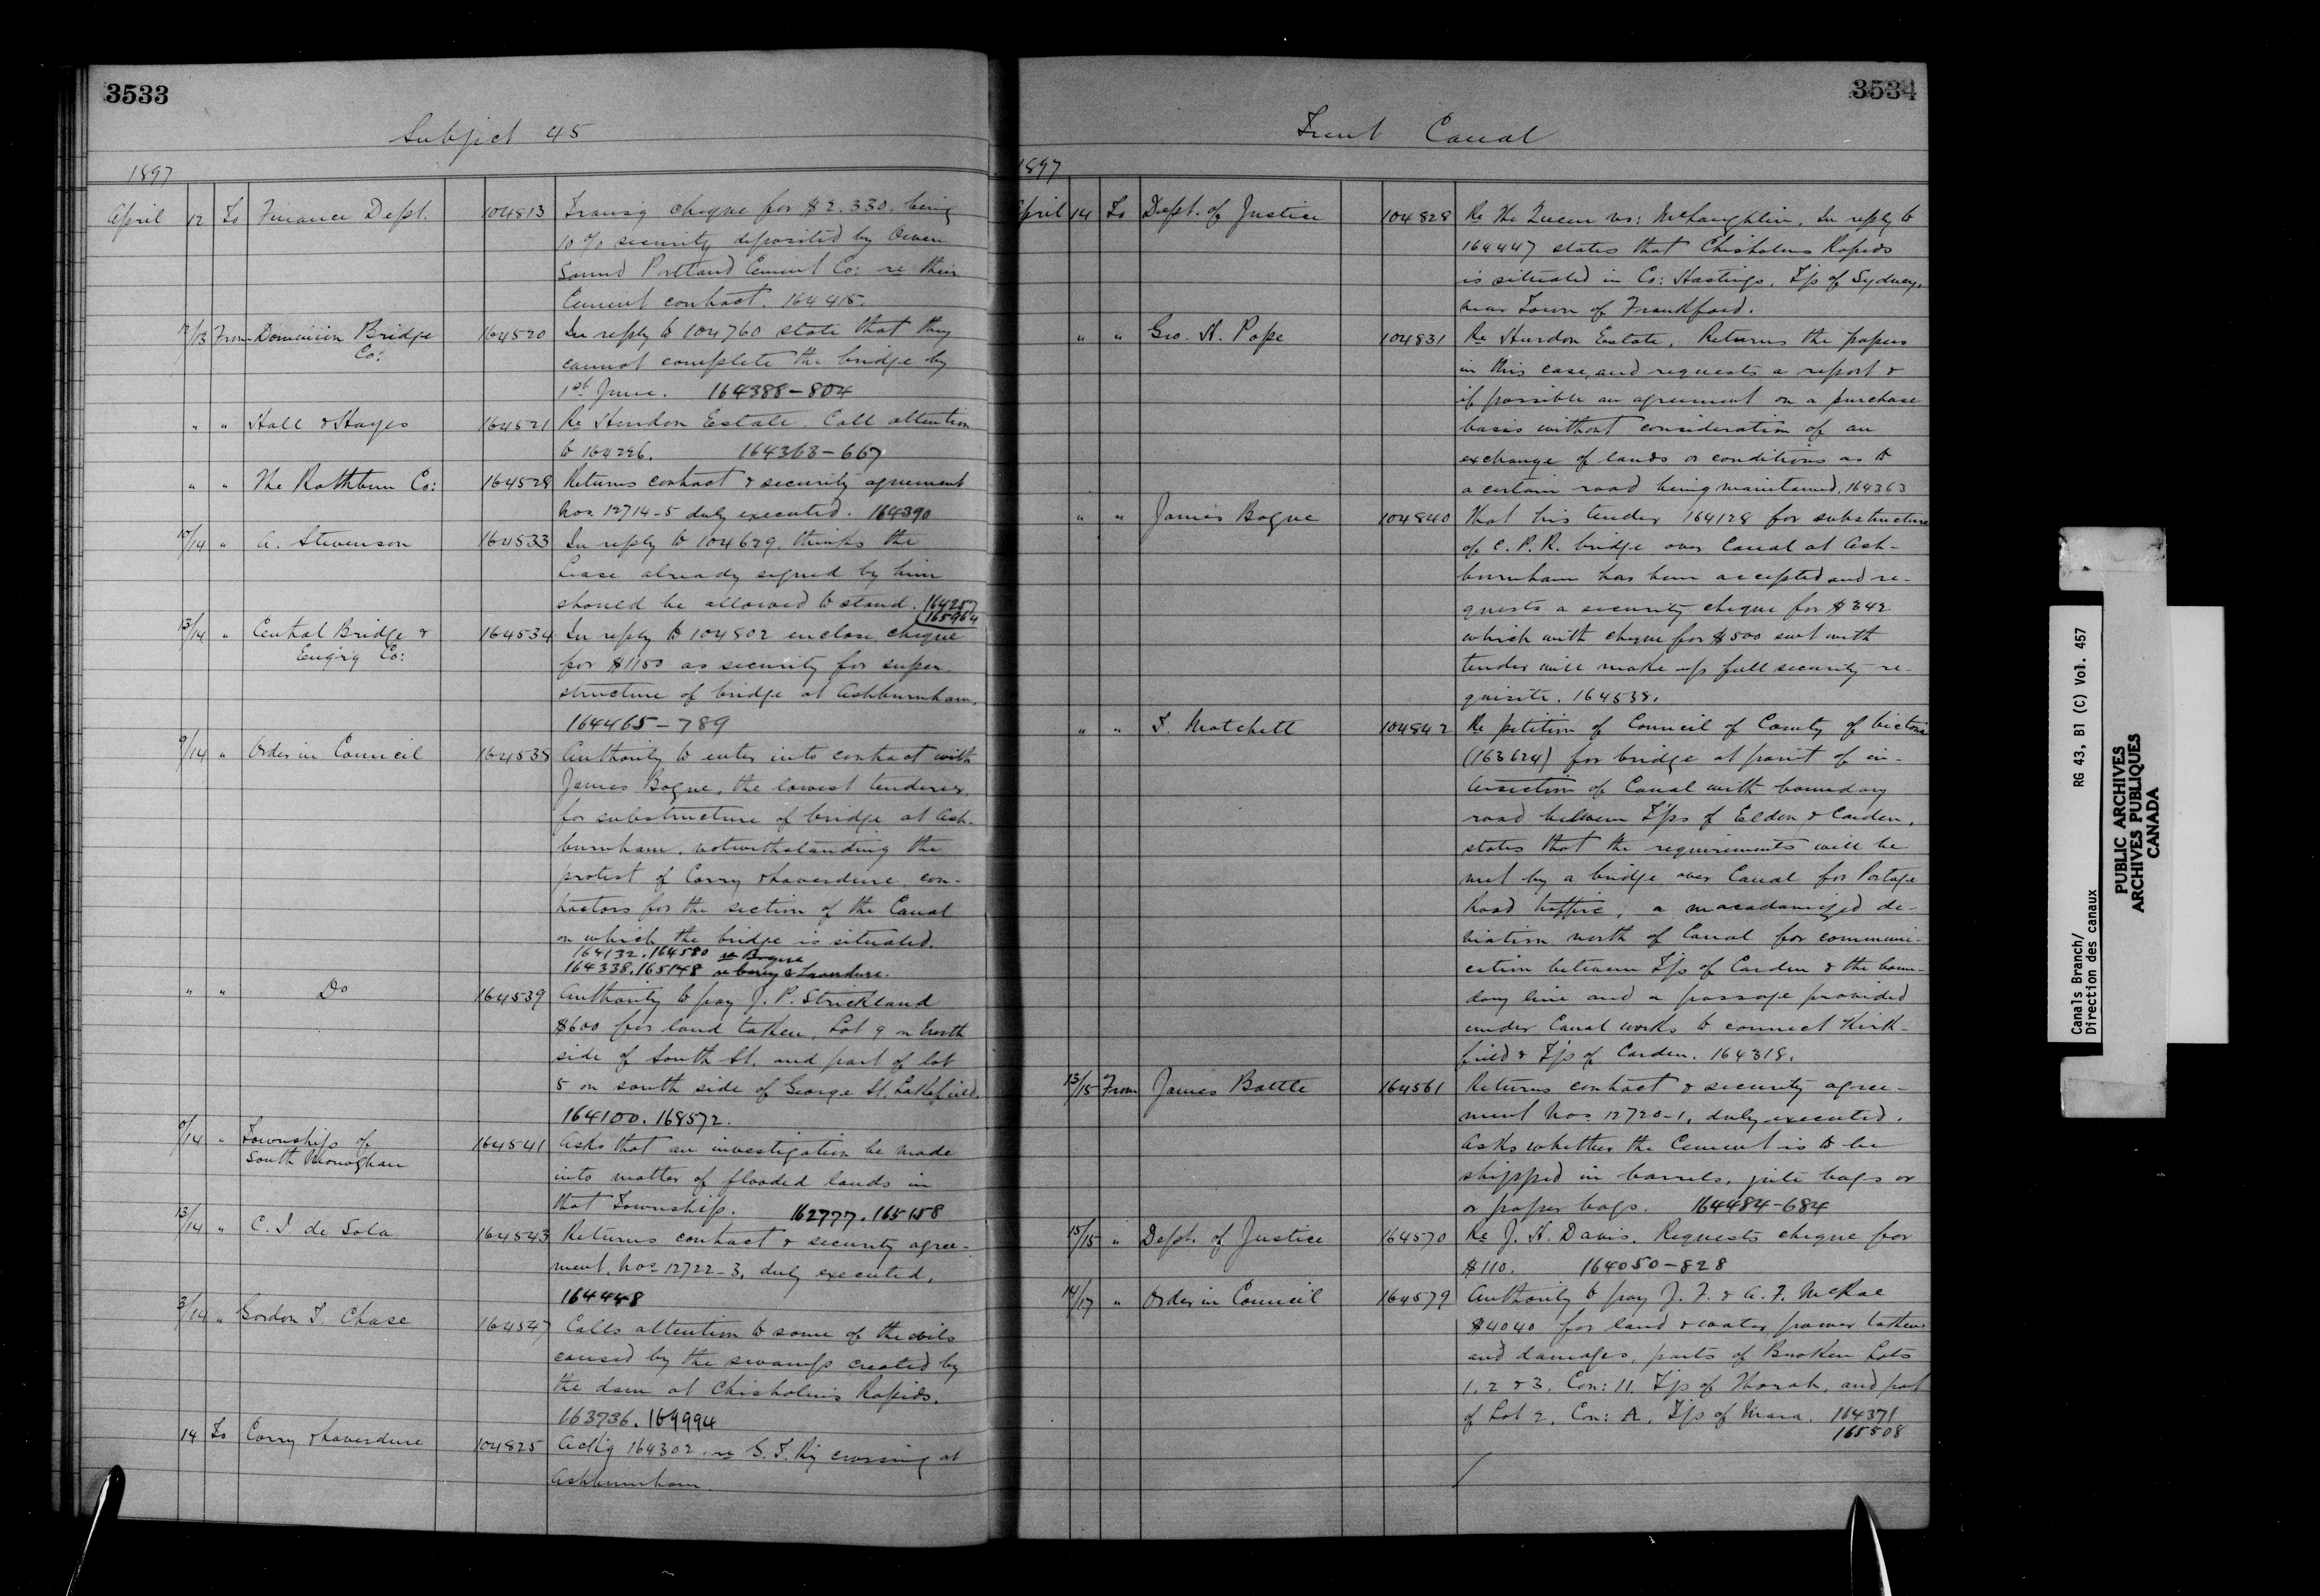 3533
Subject 45
1897
April 12 To Finance Dept. 104813 Transg cheque for $2.330. being
10% security deposited by Owen
Sound Portland Cement Co: re their
Cement contract. 164415.
12/13 From Dominion Bridge 164520 In reply to 104760 state that they
Co: cannot complete the bridge by
1st June. 164388-804
" " Hall & Hayes 164521 Re Hurdon Estate. Call attention
to 164226. 164363-667
" " The Rathbun Co: 164528 Returns contract & security agreement
nos 12714-5 duly executed. 164390
10/14 " A. Stevenson 164533 In reply to 104629, thinks the
lease already signed by him
should be allowed to stand. 164287
165964
13/14 " Central Bridge & 164534 In reply to 104802 enclose cheque
Eng'r'g Co: for $1150 as security for super
structure of bridge at Ashburnham.
164465-789
9/14 " Order in Council 164538 Authority to enter into contract with
James Bogue, the lowest tenderer,
for substructure of bridge at Ash-
burnham, notwithstanding the
protest of Corry & Laverdure con-
tractors for the section of the Canal
on which the bridge is situated.
164132.164580 re Bogue
164338.165148 re Corry & Laverdure.
" " Do 164539 Authority to pay J. P. Strickland
$600 for land taken, Lot 9 on North
side of South St. and part of lot
5 on south side of George St. Lakefield.
164100. 168572.
/14 " Township of 164541 Asks that an investigation be made
South Monoghan into matter of flooded lands in
that Township. 162777. 165158
13/14 " C. I. de Sola 164543 Returns contract & security agree-
ment, nos 12722-3, duly executed.
164448
3/14 " Gordon T. Chase 164547 Calls attention to some of the evils
caused by the swamps created by
the dam at Chisholm's Rapids.
163736. 164994
14 To Corry & Laverdure 104825 Ackg 164302. re G. T. Ry crossing at
Ashburnham.
3534
Trent Canal
1897
April 14 To Dept. of Justice 104828 Re The Queen vs: McLaughlin. In reply to
164447 states that Chisholms Rapids
is situated in Co: Hastings, T'p of Sydney,
near Town of Frankford.
" " Geo. A. Pope 104831 Re Hurdon Estate. Returns the papers
in this case, and requests a report &
if possible an agreement on a purchase
basis without consideration of an
exchange of lands or conditions as to
a certain road being maintained. 164363
" " James Bogue 104840 That his tender 164128 for substructure
of C. P. R. bridge over Canal at Ash-
burnham has been accepted and re-
quests a security cheque for $342
which with cheque for $500 sent with
tender will make up full security re-
quisite. 164538.
" " T. Matchett 104842 Re petition of Council of County of Victoria
(163624) for bridge at point of in-
tersection of Canal with boundary
road between T'ps of Eldon & Carden,
states that the requirements will be
met by a bridge over Canal for Portage
Road traffic, a macadamized de-
viation north of Canal for communi-
cation between T'p of Carden & the boun-
dary line and a passage provided
under Canal works to connect Kirk-
field & T'p of Carden. 164318.
13/15 From James Battle 164561 Returns contract & security agree-
ment nos 12720-1, duly executed.
Asks whether the Cement is to be
shipped in barrels, jute bags or
or paper bags. 164484-684
15/15 " Dept. of Justice 164570 Re J. H. Davis. Requests cheque for
$110. 164050-828
14/17 " Order in Council 164579 Authority to pay J. F. & A. F. McRae
$4040 for land & water power taken
and damages, parts of Broken Lots
1, 2 & 3, Con: 11. T'p of Thorah, and part
of Lot 2, Con: A, T'p of Mara. 164371
165508
Canals Branch/
Direction des canaux RG 43, B1 (C) Vol. 457
PUBLIC ARCHIVES
ARCHIVES PUBLIQUES
CANADA